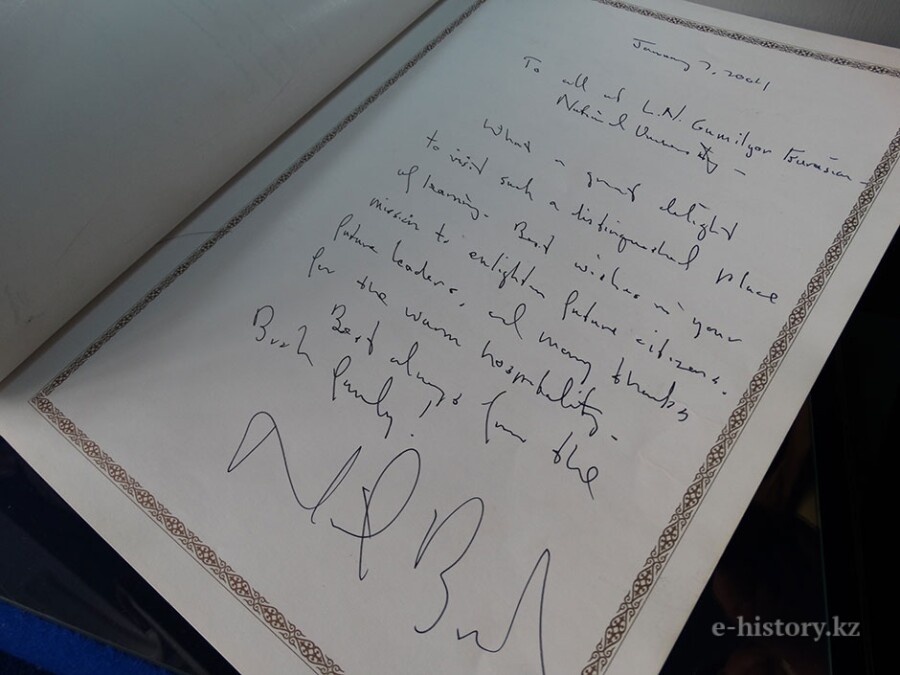 January 7, 2004
To all at L.N. Gumilyov Eurasian
National University -
What a great delight
to visit such a distinguished place
of learning. Best wishes in your
mission to enlighten future citizens,
future leaders, and many thanks
for the warm hospitality.
Best always from the
Bush family!
Neil Bush
e-history.kz